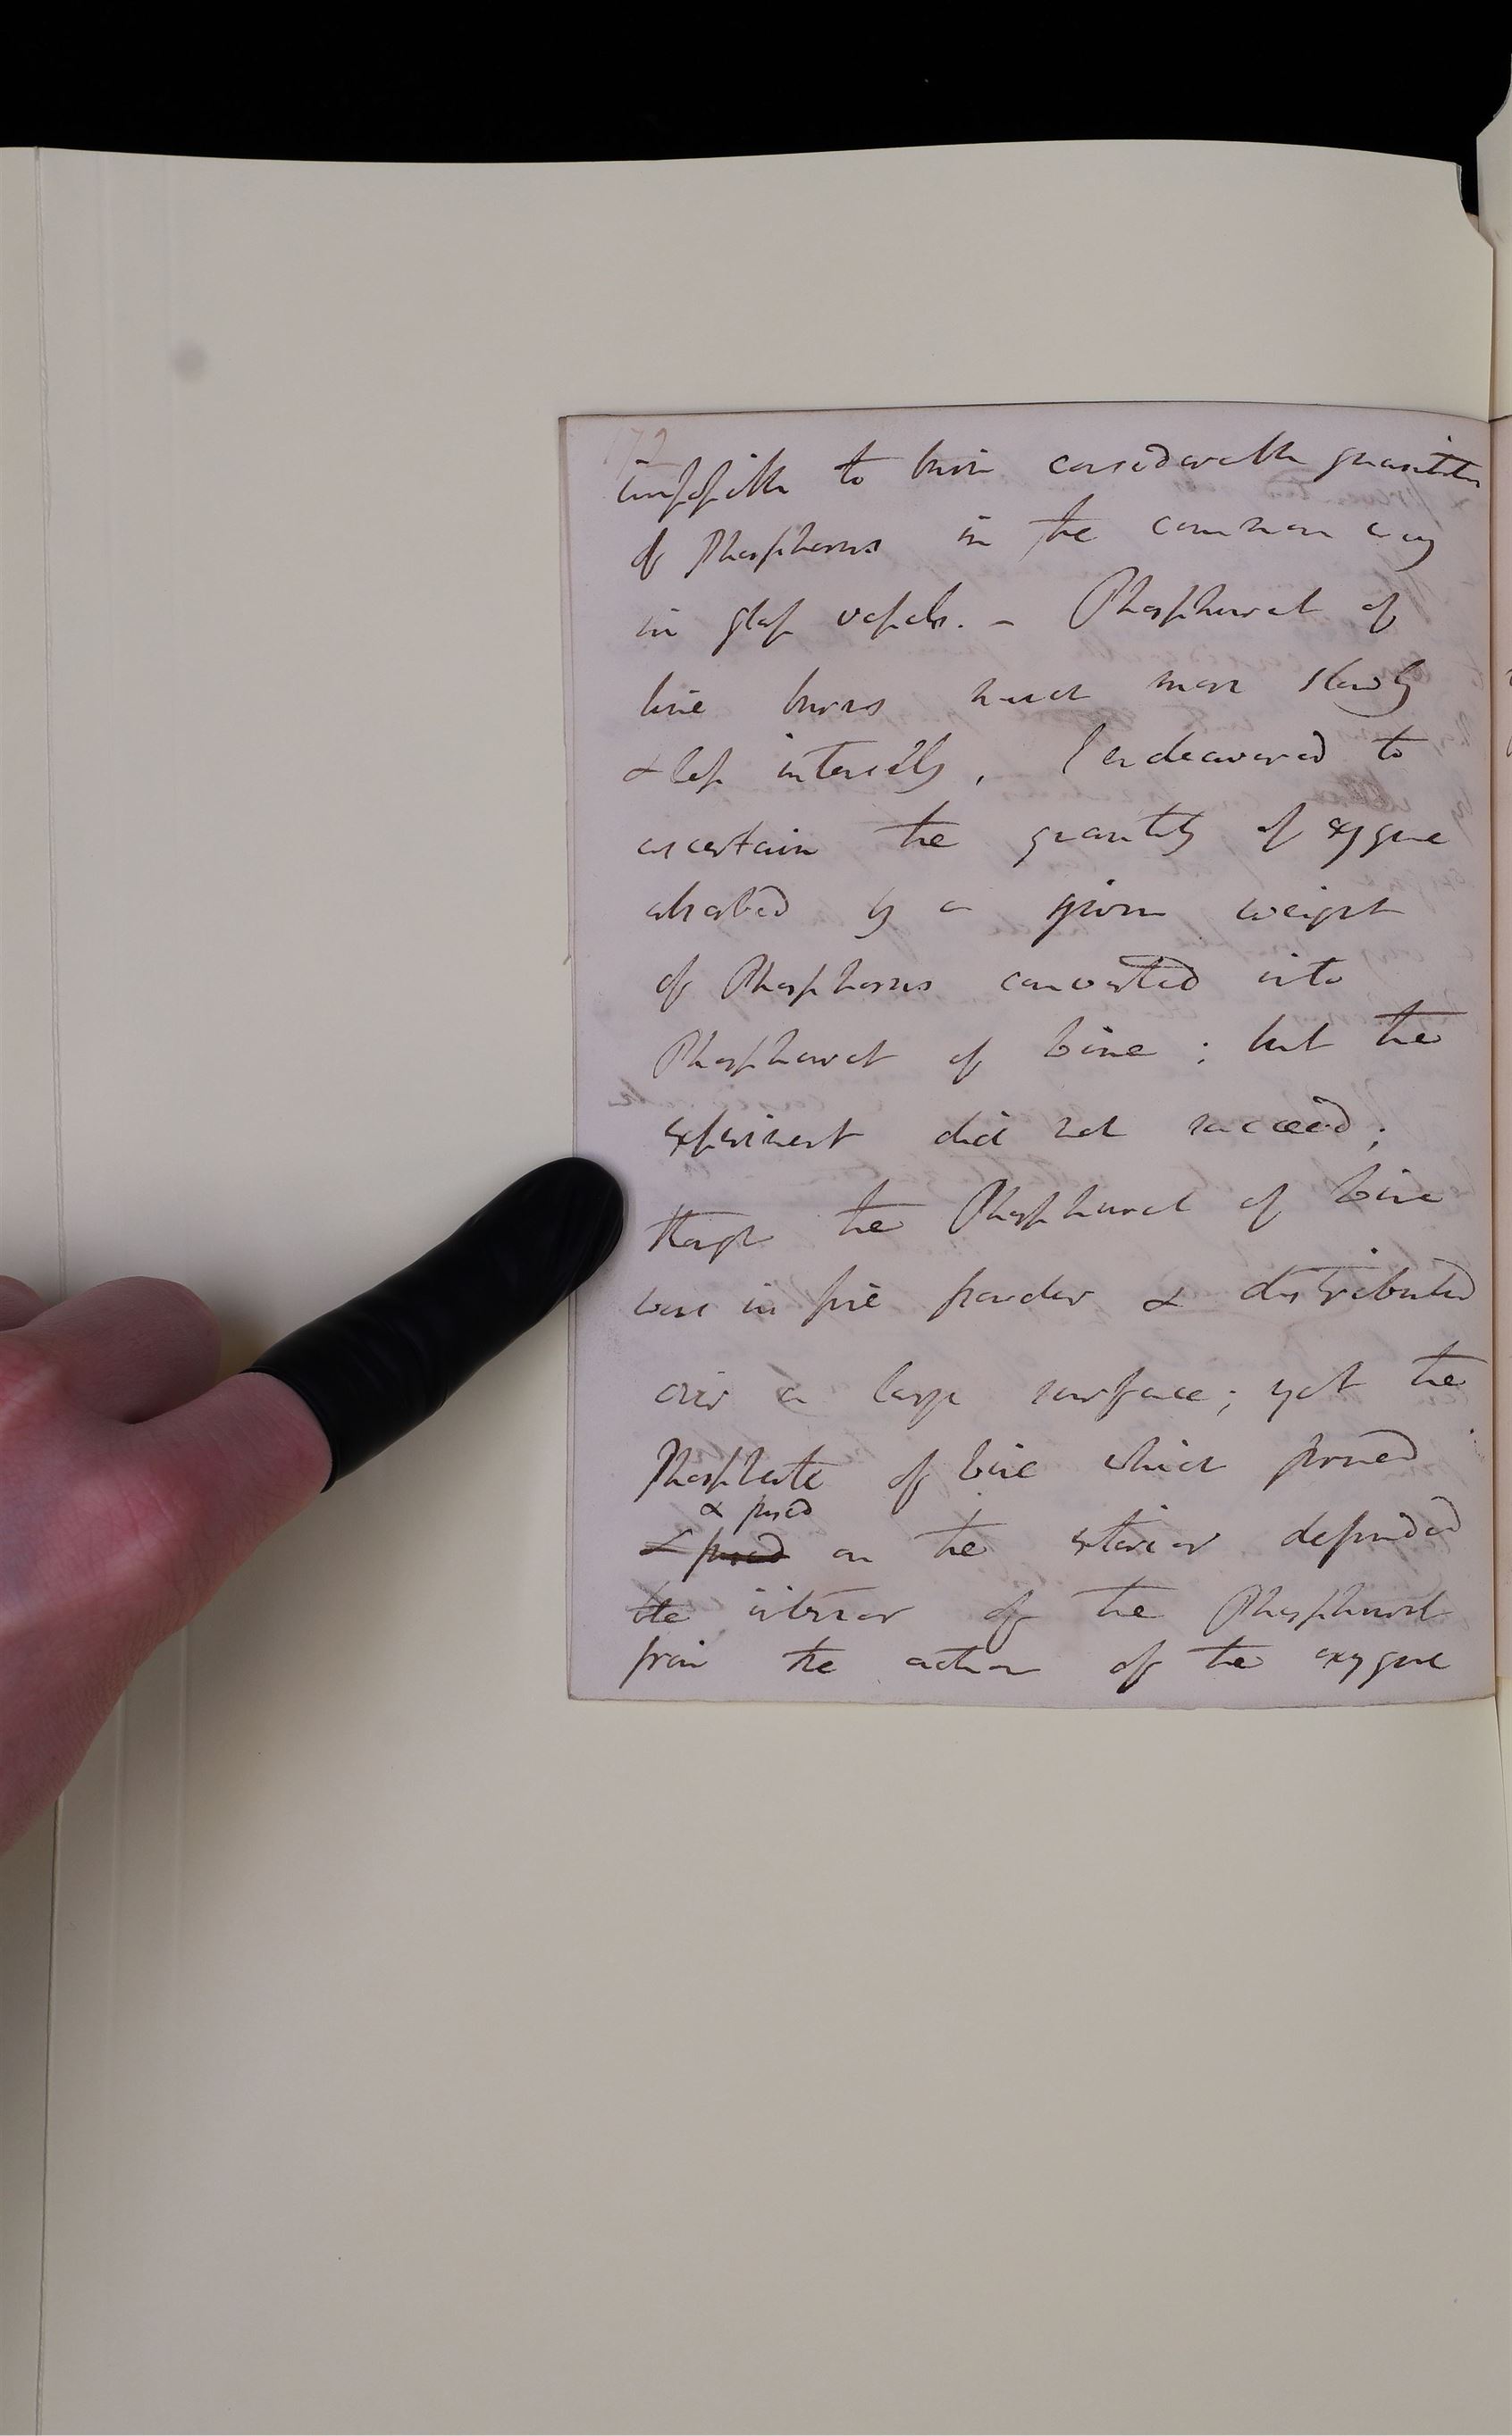 172
impossible to burn considerable quantities
of Phosphorus in the common way
in glass vessels. – Phosphuret of
lime burns much more slowly
& less intensely, I endeavored to
ascertain the quantity of oxygene
absorbed by a given weight
of Phosphorus converted into
Phosphuret of lime ; but the
experiment did not succeed ;
though the Phosphuret of lime
was in fine powder & distributed
over a large surface ; yet the
Phosphate of lime which formed
& fused
& fused on the exterior defended
the interior of the Phosphuret
from the action of the oxygene